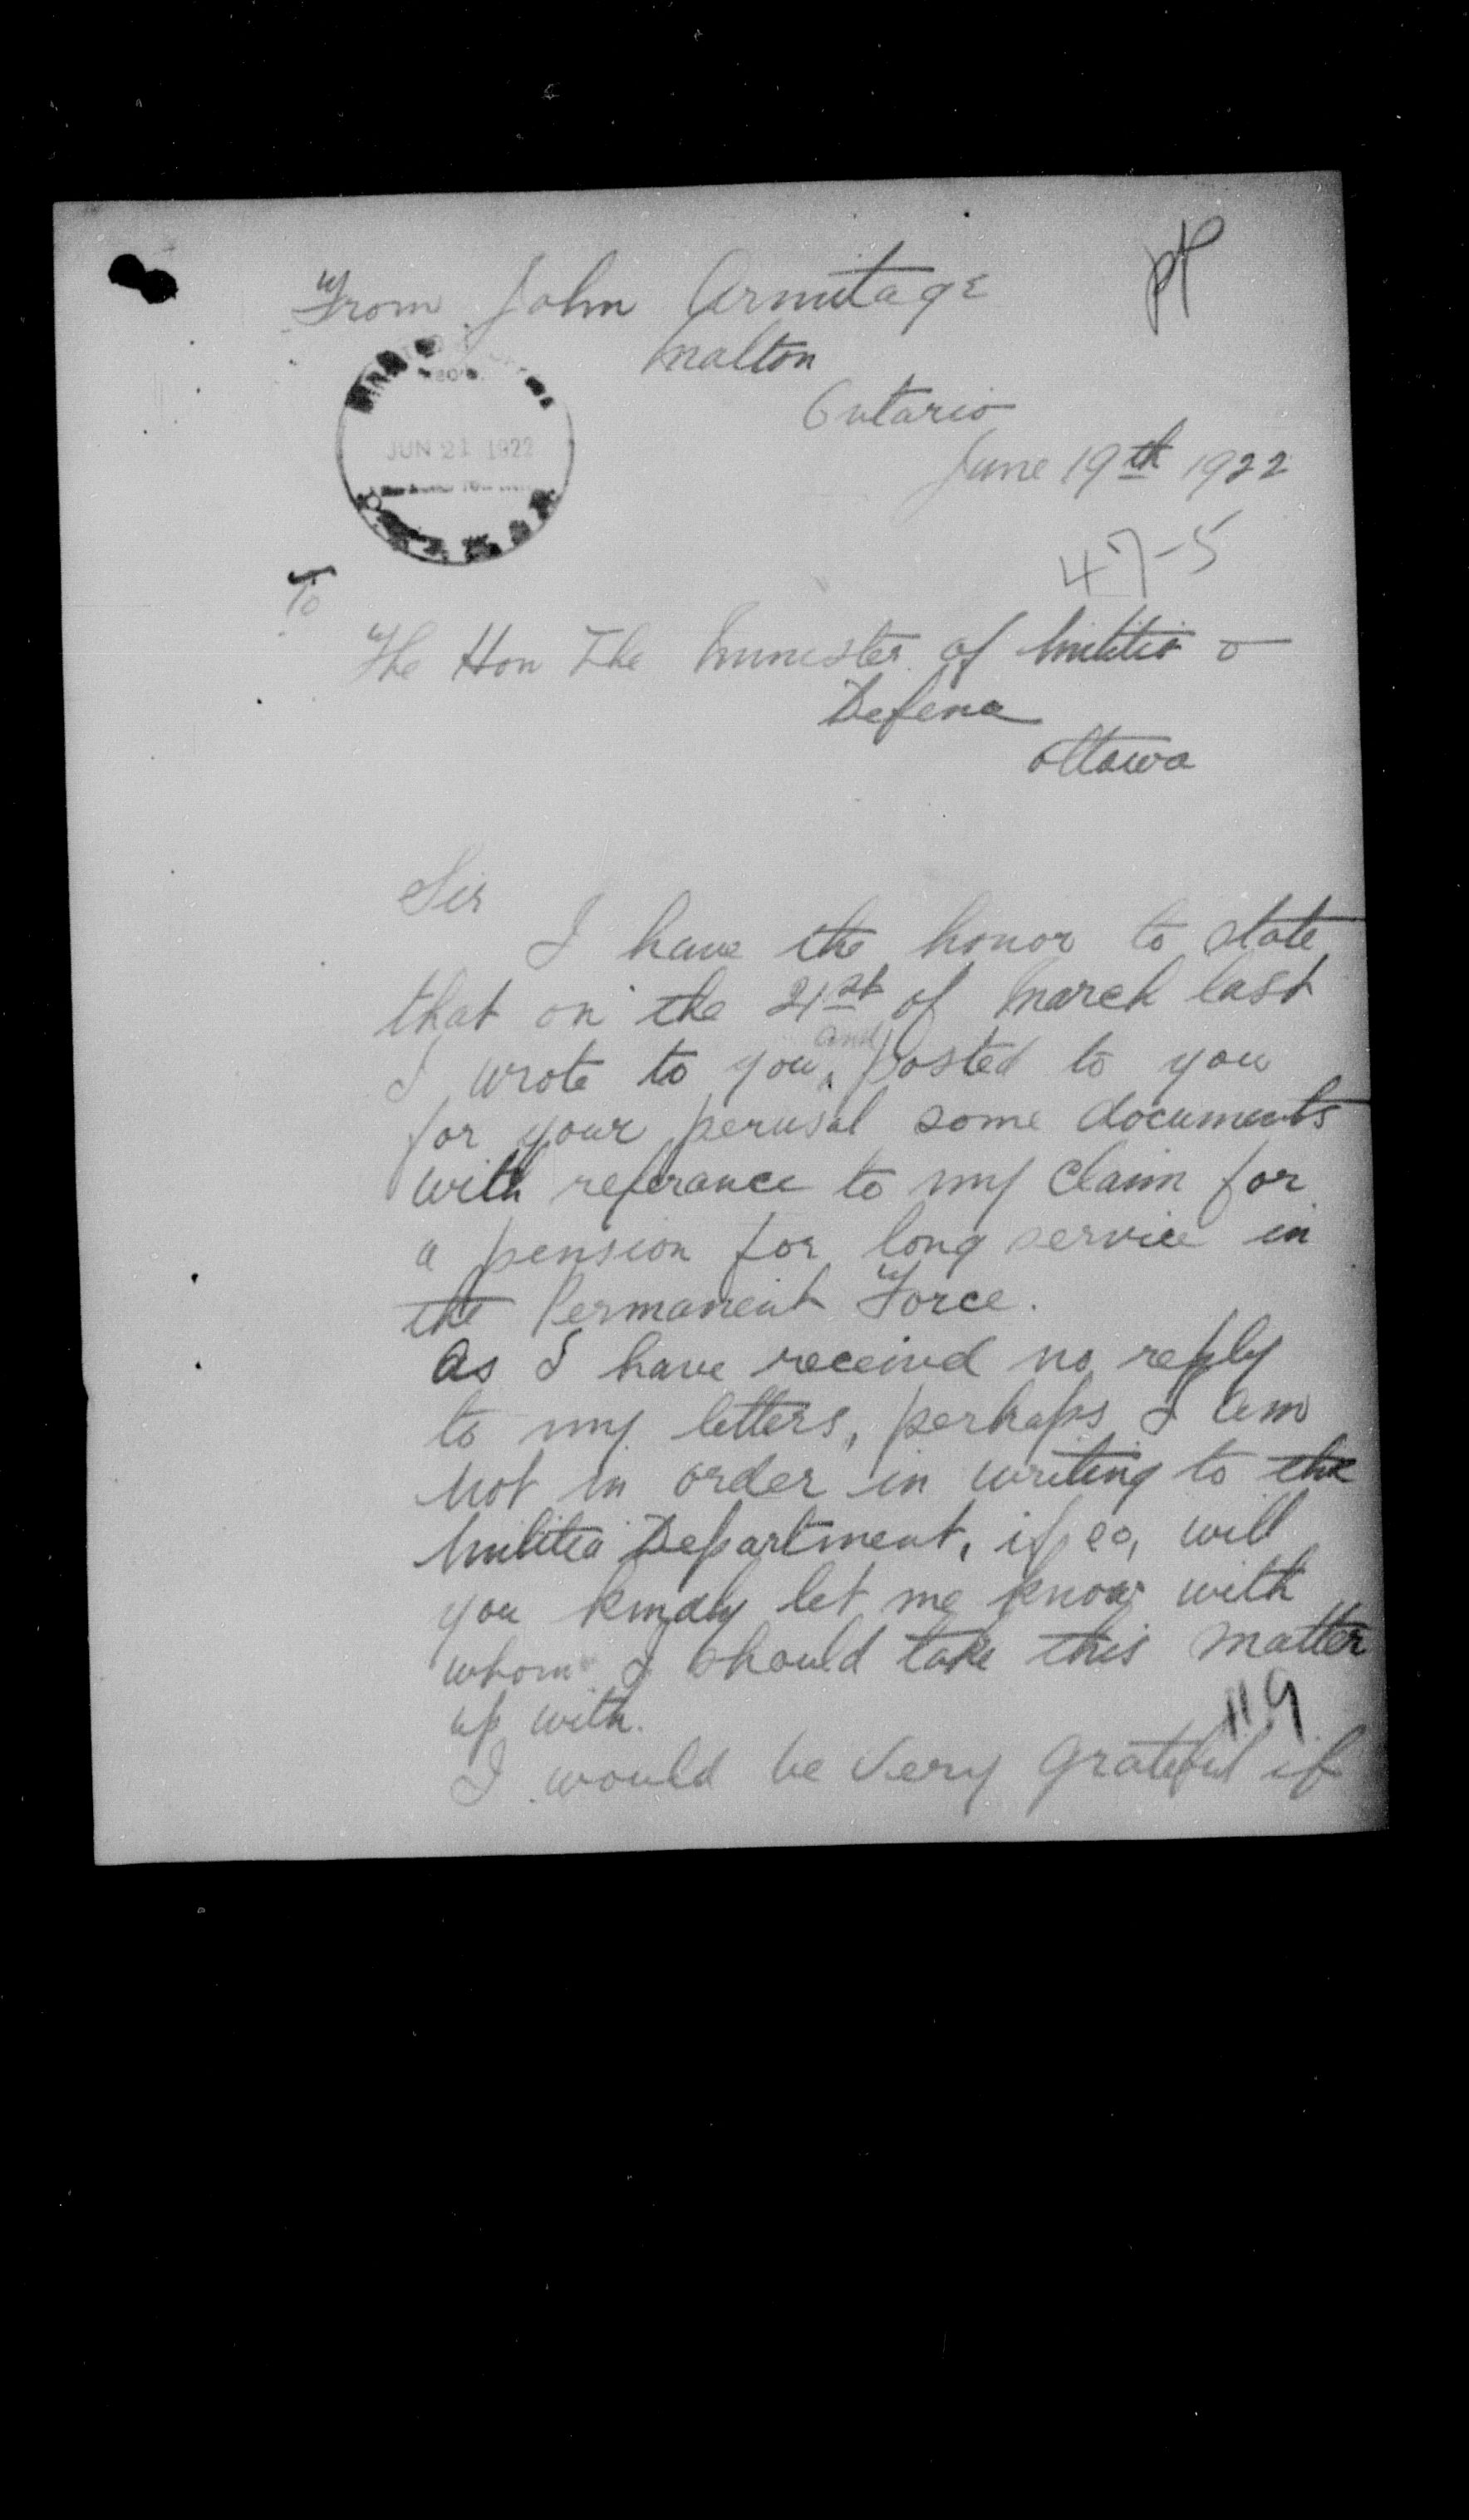 pp
From John Armitage
Malton
Ontario
June 19th 1922
JUN 21 1922
47-5
To
The Hon The Minister of Militia &
Defence
Ottawa
Sir
I have the honor to state
that on the 21st of March last
I wrote to you and posted to you
for your perusal some documents
with referance to my claim for
a pension for long service in
the Permanent Force.
As I have received no reply
to my letters, perhaps I am
not in order in writing to the
Militia Department, if so, will
you kindly let me know with
whom I should take this matter
up with.
119
I would be very grateful if